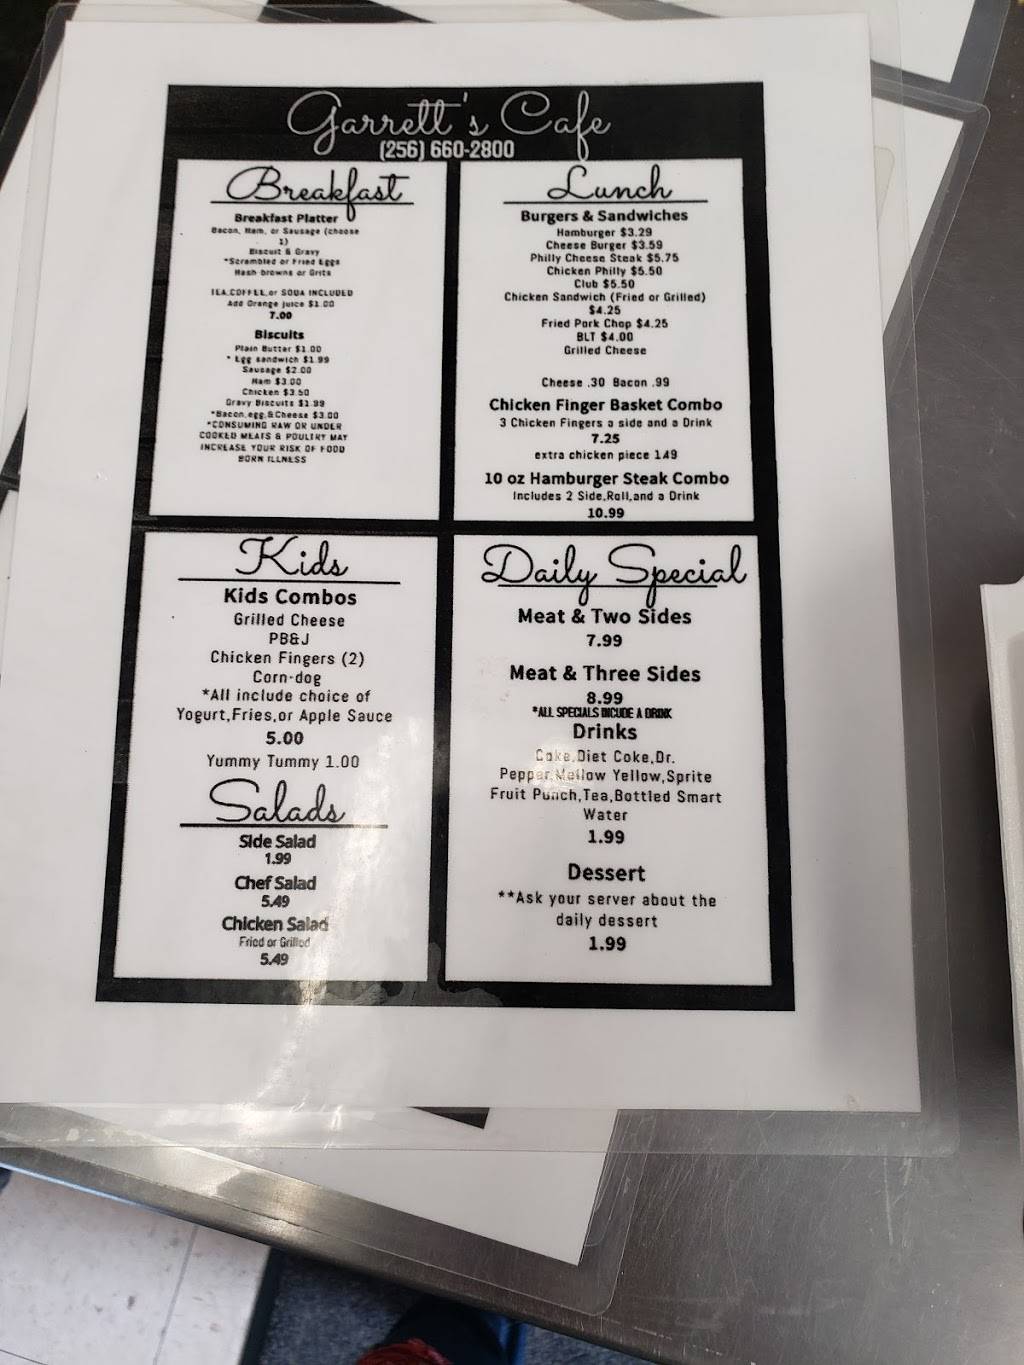 Garrett's Cafe
(256) 660-2800
Breakfast
Breakfast Platter
Bacon, Ham, or Sausage (choose
1)
Biscuit & Gravy
*Scrambled or Fried Eggs
Hash browns or Grits
TEA,COFFEE,or SODA INCLUDED
Add Orange juice $1.00
7.00
Biscuits
Plain Butter $1.00
* Egg sandwich $1.99
Sausage $2.00
Ham $3.00
Chicken $3.50
Gravy Biscuits $1.99
*Bacon,egg,&Cheese $3.00
*CONSUMING RAW OR UNDER
COOKED MEATS & POULTRY MAY
INCREASE YOUR RISK OF FOOD
BORN ILLNESS
Lunch
Burgers & Sandwiches
Hamburger $3.29
Cheese Burger $3.59
Philly Cheese Steak $5.75
Chicken Philly $5.50
Club $5.50
Chicken Sandwich (Fried or Grilled)
$4.25
Fried Pork Chop $4.25
BLT $4.00
Grilled Cheese
Cheese .30 Bacon .99
Chicken Finger Basket Combo
3 Chicken Fingers a side and a Drink
7.25
extra chicken piece 1.49
10 oz Hamburger Steak Combo
Includes 2 Side,Roll,and a Drink
10.99
Kids
Kids Combos
Grilled Cheese
PB&J
Chicken Fingers (2)
Corn-dog
*All include choice of
Yogurt,Fries,or Apple Sauce
5.00
Yummy Tummy 1.00
Salads
Side Salad
1.99
Chef Salad
5.49
Chicken Salad
Fried or Grilled
5.49
Daily Special
Meat & Two Sides
7.99
Meat & Three Sides
8.99
*ALL SPECIALS INCUDE A DRINK
Drinks
Coke,Diet Coke,Dr.
Pepper,Mellow Yellow,Sprite
Fruit Punch,Tea,Bottled Smart
Water
1.99
Dessert
**Ask your server about the
daily dessert
1.99